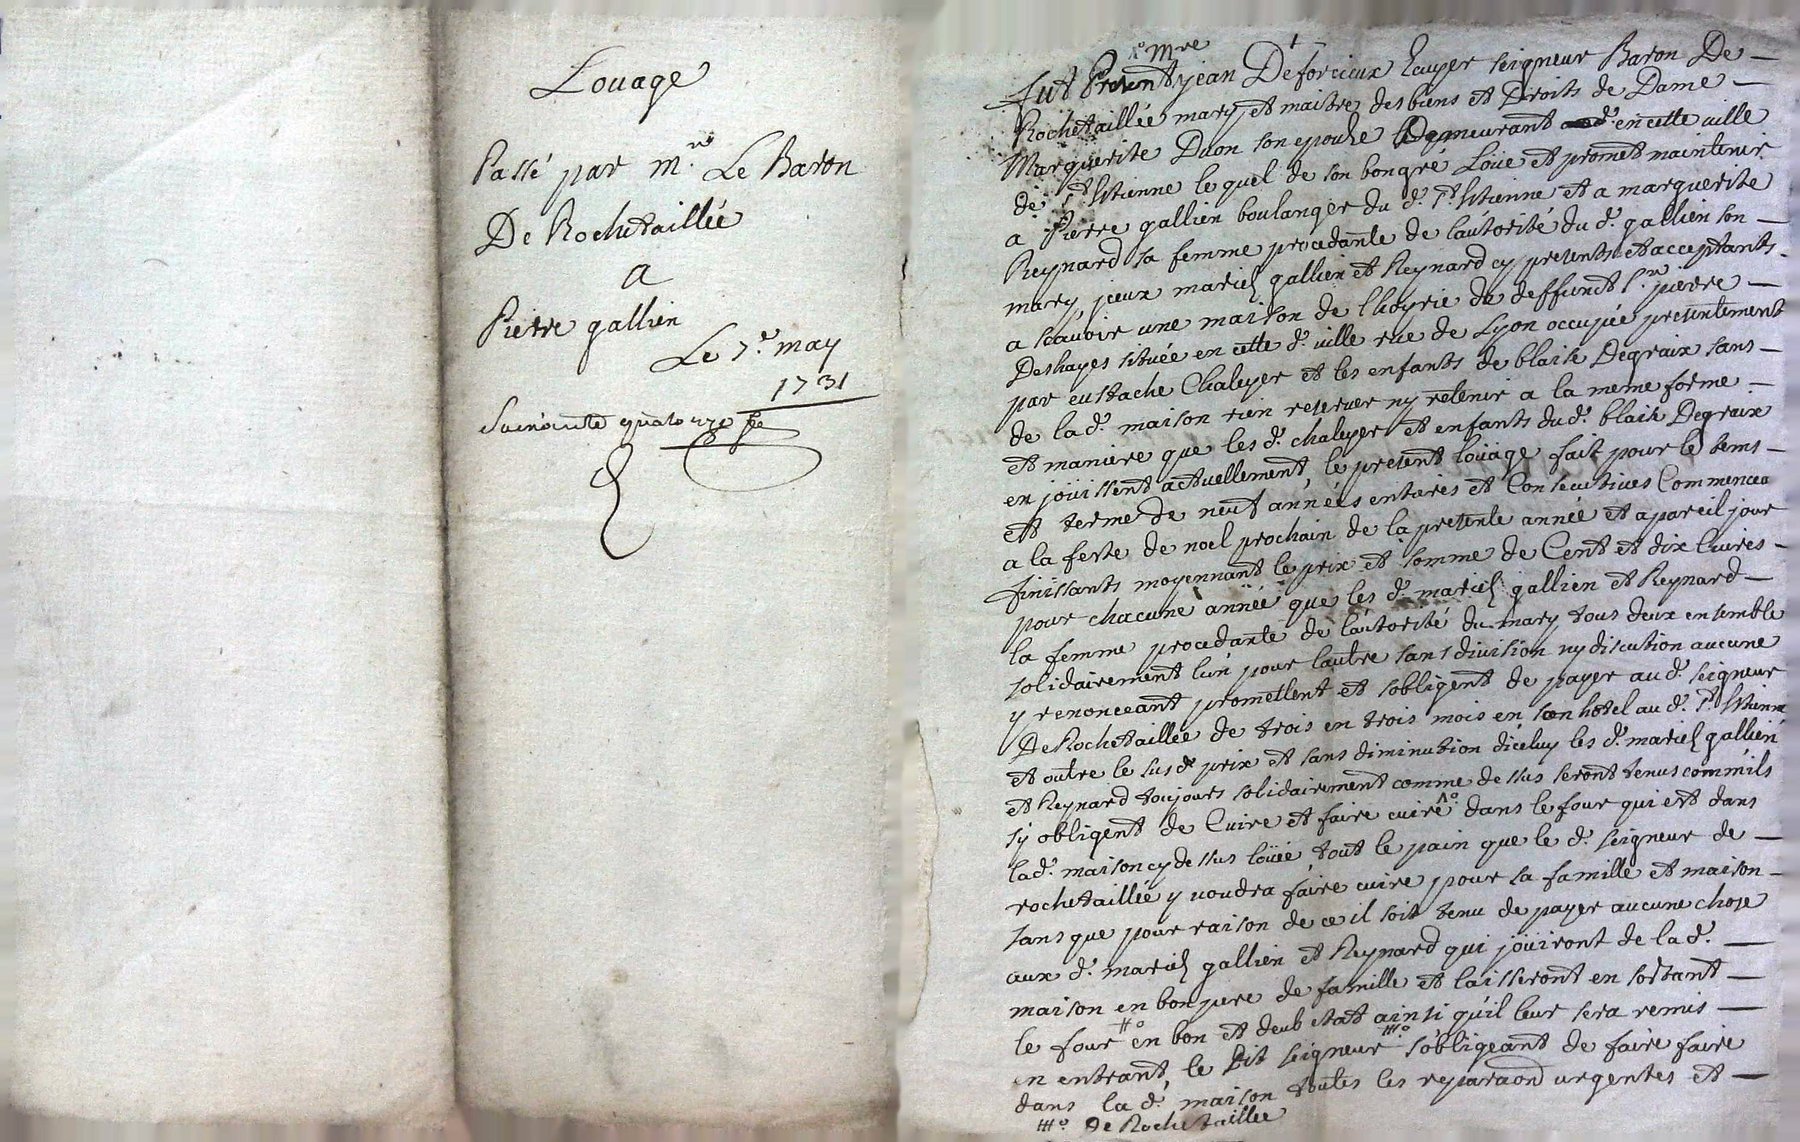 Louage
Passé par mre Le Baron
De Rochetaillée
a
Pierre gallien
Le 7e may
1731
quatorze
No mre
fut Present jean Deforcieux Ecuyer seigneur Baron De
Rochetaillée mary et maitre des biens et Droits de Dame
Marguerite Duon son epouse Demeurant en cette ville
de St Etienne lequel de son bongré Loüe et promet maintenir
a Pierre gallien boulanger du d. St Etienne et a marguerite
Reynard sa femme procedante de l'autorité du d. gallien son
mary, jceux mariés gallien et Reynard cy presents et acceptants
a scavoir une maison de l'hoyrie de deffunct Sr pierre
Deshayes située en cette d. ville rue de Lyon occupée presentement
par eustache Chaleyer et les enfants de blaise Degraix sans
de la d. maison rien reserver ny retenir a la meme forme
et maniere que les d. chaleyer et enfants du d. blaise Degraix
en joüissent actuellement, le present loüage fait pour le tems
et terme de neuf années entieres et Consecutives Commencea
a la feste de noel prochain de la presente année et a pareil jour
finissants moyennant le prix et somme de Cent et dix livres
pour chacune année que les d. mariés gallien et Reynard
sa femme procedante de l'autorité du mary tous deux ensemble
solidairement l'un pour l'autre sans division ny discution aucune
y renonceant promettent et s'obligent de payer au d. seigneur
De Rochetaillée de trois en trois mois en son hotel au d. St Etienne
et outre le susd. prix et sans diminution diceluy les d. mariés gallien
et Reynard toujours solidairement comme dessus seront tenus comm'ils
s'y obligent de Cuire et faire cuire No dans le four qui est dans
la d. maison cy dessus loüée, tout le pain que le d. seigneur de
rochetaillée y voudra faire cuire pour sa famille et maison
sans que pour raison de ce il soit tenu de payer aucune chose
aux d. mariés gallien et Reynard qui joüiront de la d.
maison en bon pere de famille et laisseront en sortant
le four en bon et deub etat ainsi qu'il leur sera remis
en entrant, le Dit seigneur s'obligeant de faire faire
dans la d. maison toutes les reparaons urgentes et
de Rochetaillée